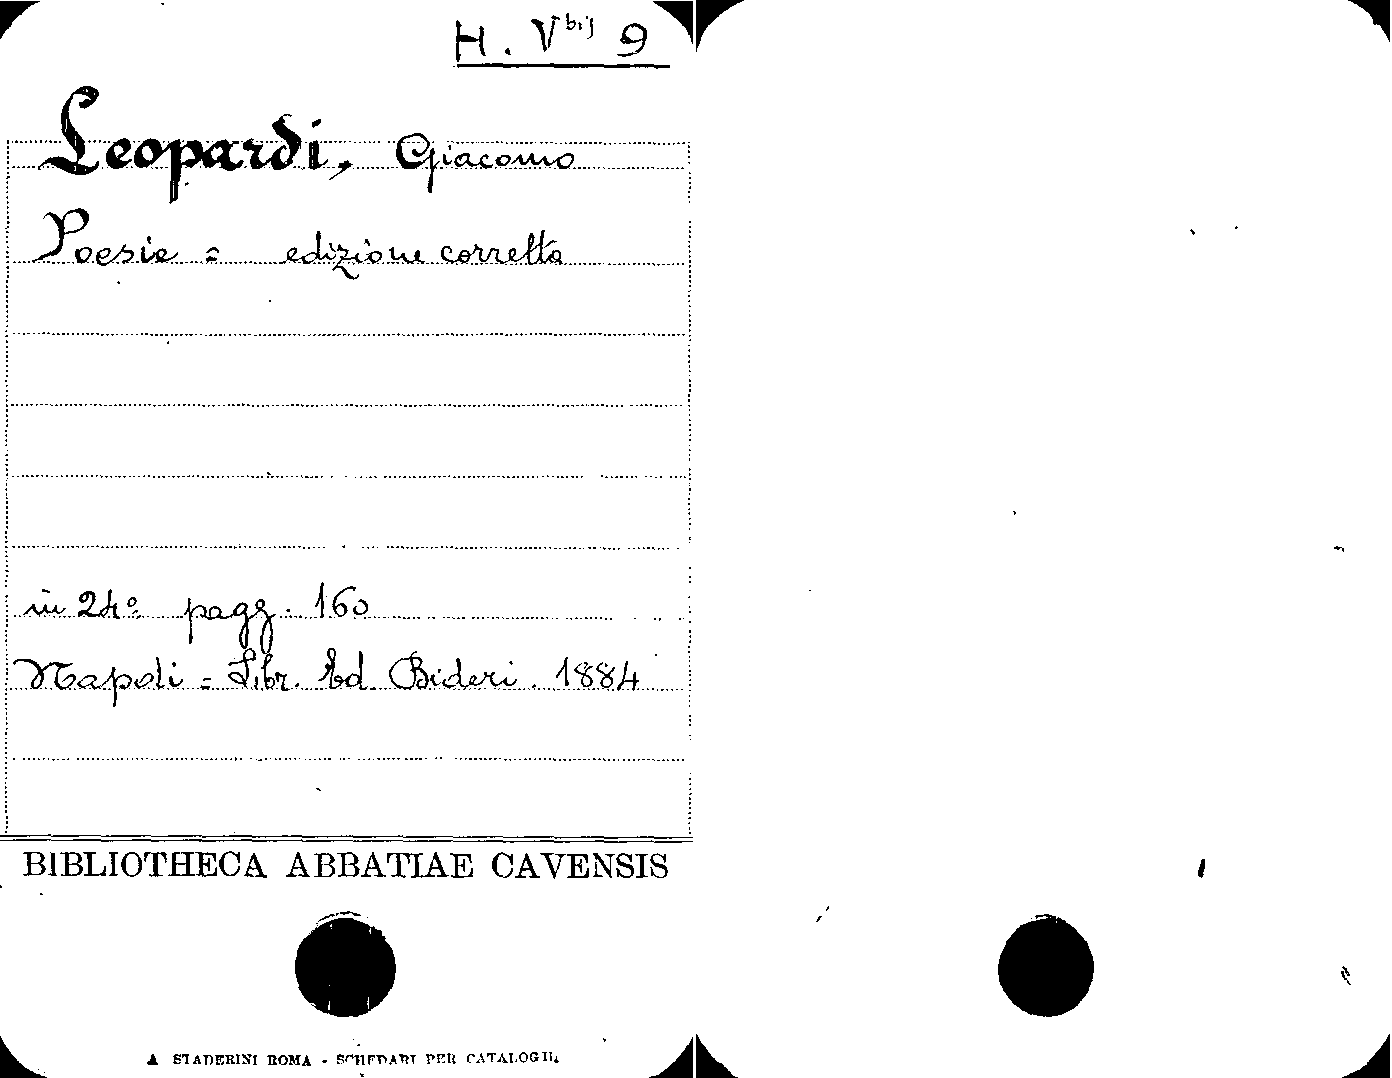 H. V bis 9
Leopardi, Giacomo
Poesie = edizione corretta
in 24º pagg. 160
Napoli = Libr. Ed. Bideri. 1884
BIBLIOTHECA ABBATIAE CAVENSIS
A STADERINI ROMA - SCHEDARI PER CATALOGHI